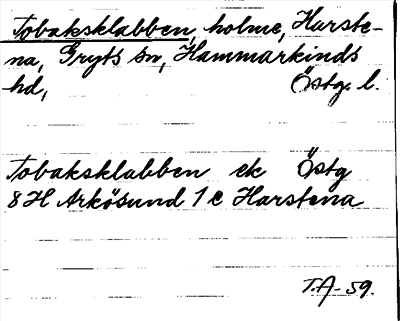 Tobaksklabben, holme, Harste-
na, Gryts sn, Hammarkinds
hd, Östg. l.
Tobaksklabben ek Östg
8 H Arkösund 1 c Harstena
T.A - 59.